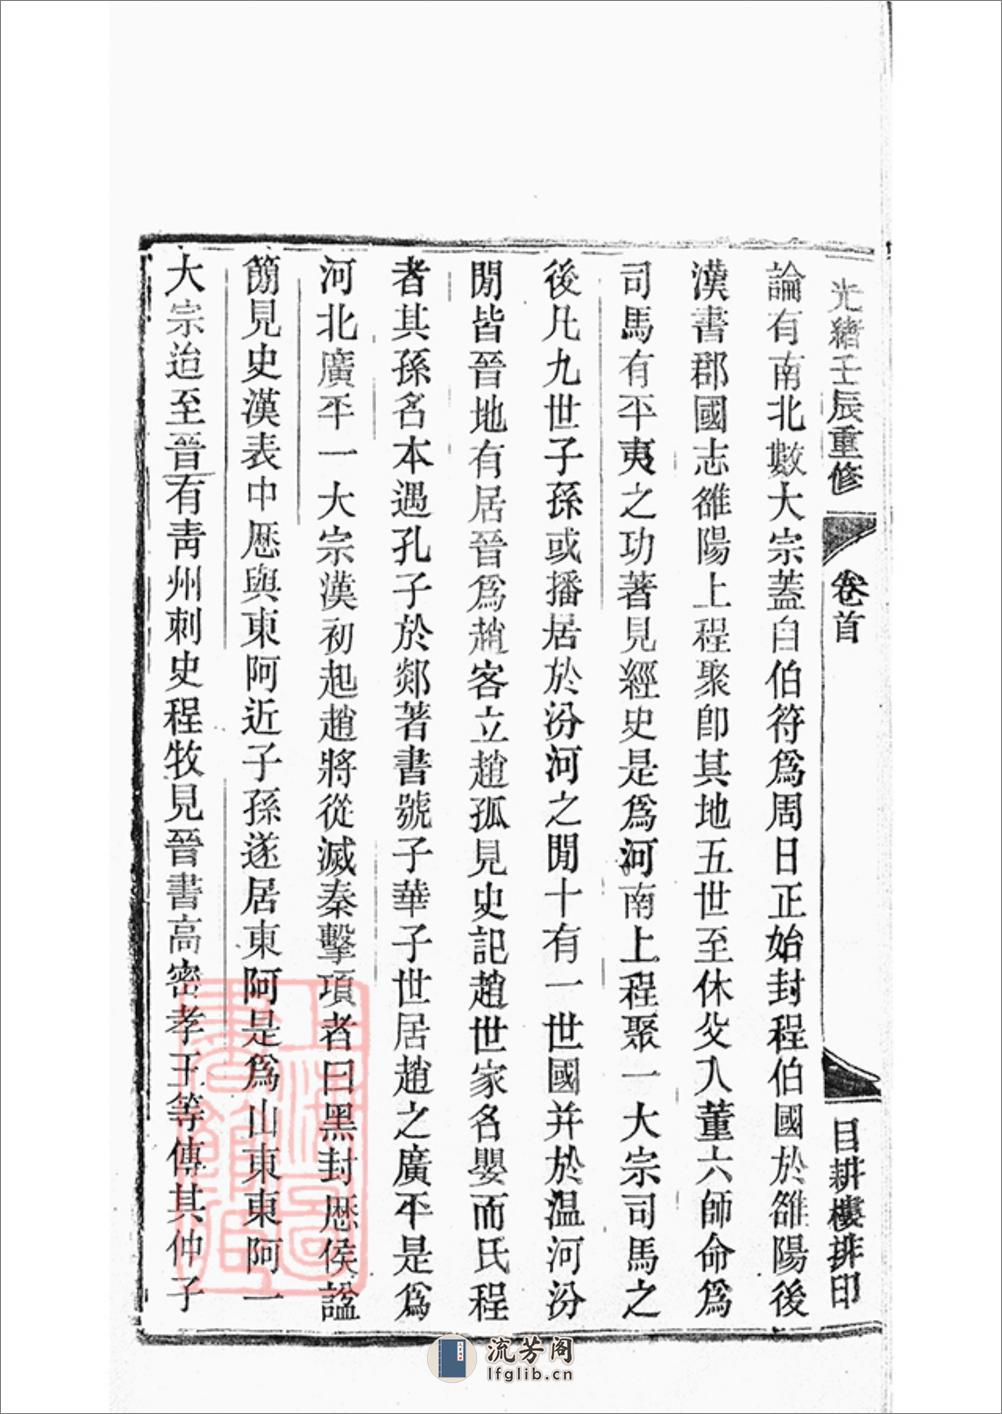 光緒壬辰重修
卷首
目耕樓排印
論有南北數大宗蓋自伯符爲周日正始封程伯國於雒陽後
漢書郡國志雒陽上程聚卽其地五世至休父入董六師命爲
司馬有平夷之功著見經史是爲河南上程聚一大宗司馬之
後凡九世子孫或播居於汾河之閒十有一世國并於温河汾
閒皆晉地有居晉爲趙客立趙孤見史記趙世家名嬰而氏程
者其孫名本遇孔子於郯著書號子華子世居趙之廣平是爲
河北廣平一大宗漢初起趙將從滅秦擊項者曰黑封厯侯諡
簡見史漢表中厯與東阿近子孫遂居東阿是爲山東東阿一
大宗迨至晉有靑州刺史程牧見晉書高密孝王等傳其仲子
上海圖書館藏
流芳阁
lfglib.cn